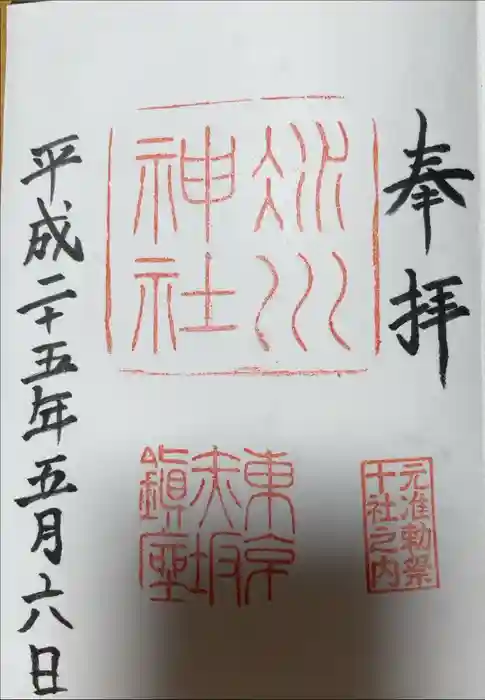 奉拝
氷川
神社
元准勅祭
十社之内
東京
赤坂
鎮座
平成二十五年五月六日